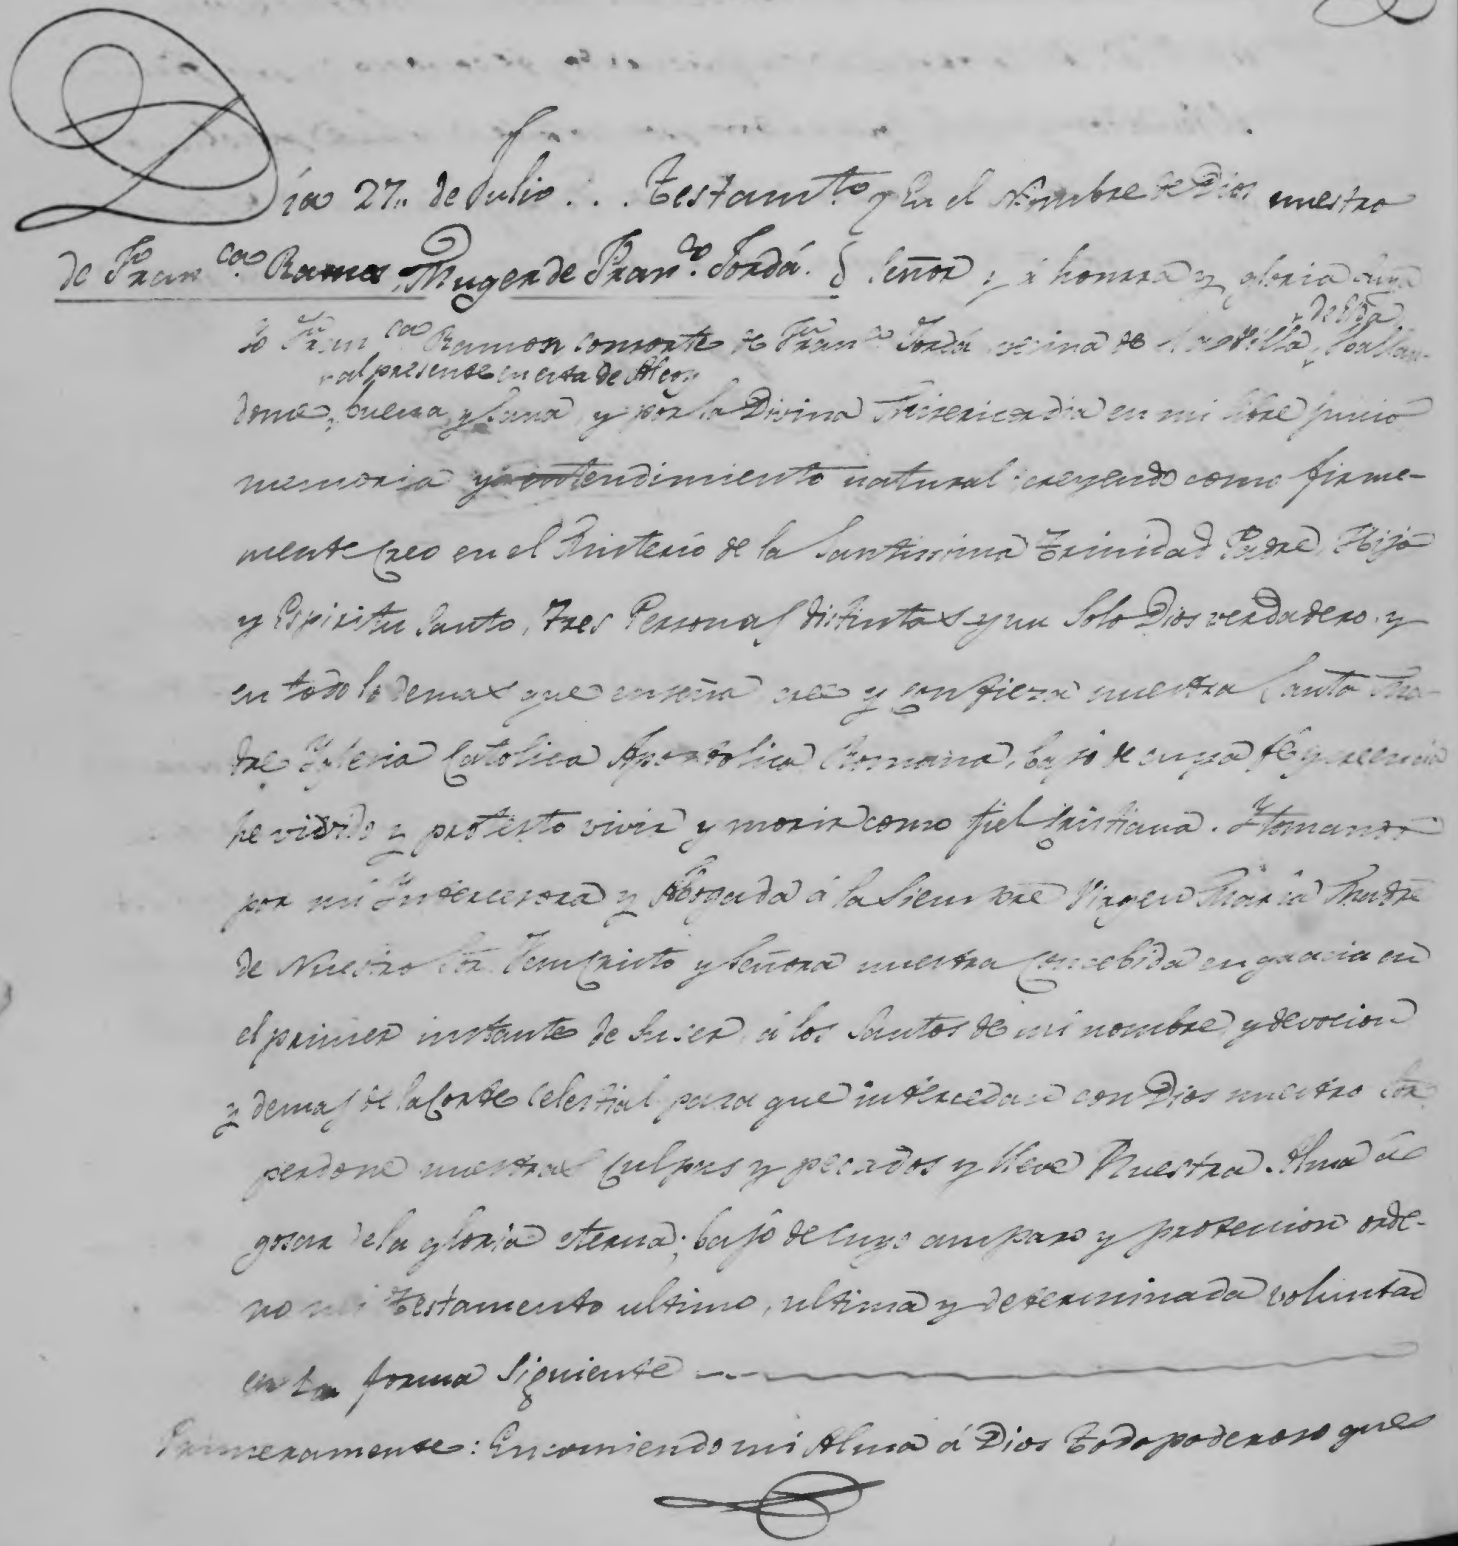 Día 27,, de Julio... Testamto. En el Nombre de Dios nuestro
de Franca. Ramos Muger de Franco. Jordá. Señor y á honra y gloria suya
Yo Franca. Ramon consorte de Franco. Jordá vecina de la Villa de Elda, hallan-
dome, al presente en esta de Alcoy, buena, y sana, y por la Divina Misericordia en mi libre juicio
memoria y entendimiento natural: creyendo como firme-
mente creo en el Misterio de la Santissima Trinidad Padre, Hijo
y Espiritu Santo, tres Personas distintas y un solo Dios verdadero. y
en todo lo demas que enseña cree y confiesa nuestra Santa Ma-
dre Yglesia Catolica Apostolica Romana, bajo de cuya fe y creencia
he vivido y protesto vivir y morir como fiel Cristiana. Y tomando
por mi Yntercesora y Abogada á la Siempre Virgen Maria Madre
de Nuestro Sor. Jesucristo y Señora nuestra concebida en gracia en
el primer instante de su ser, á los Santos de mi nombre y devocion
y demas de la Corte Celestial para que intercedan con Dios nuestro Sor.
perdone nuestras culpas y pecados y lleve Nuestra Alma á
gosar de la gloria eterna; bajo de cuyo amparo y proteccion orde-
no mi Testamento ultimo, ultima y determinada voluntad
en la forma siguiente
Primeramente: Encomiendo mi Alma á Dios Todopoderoso que